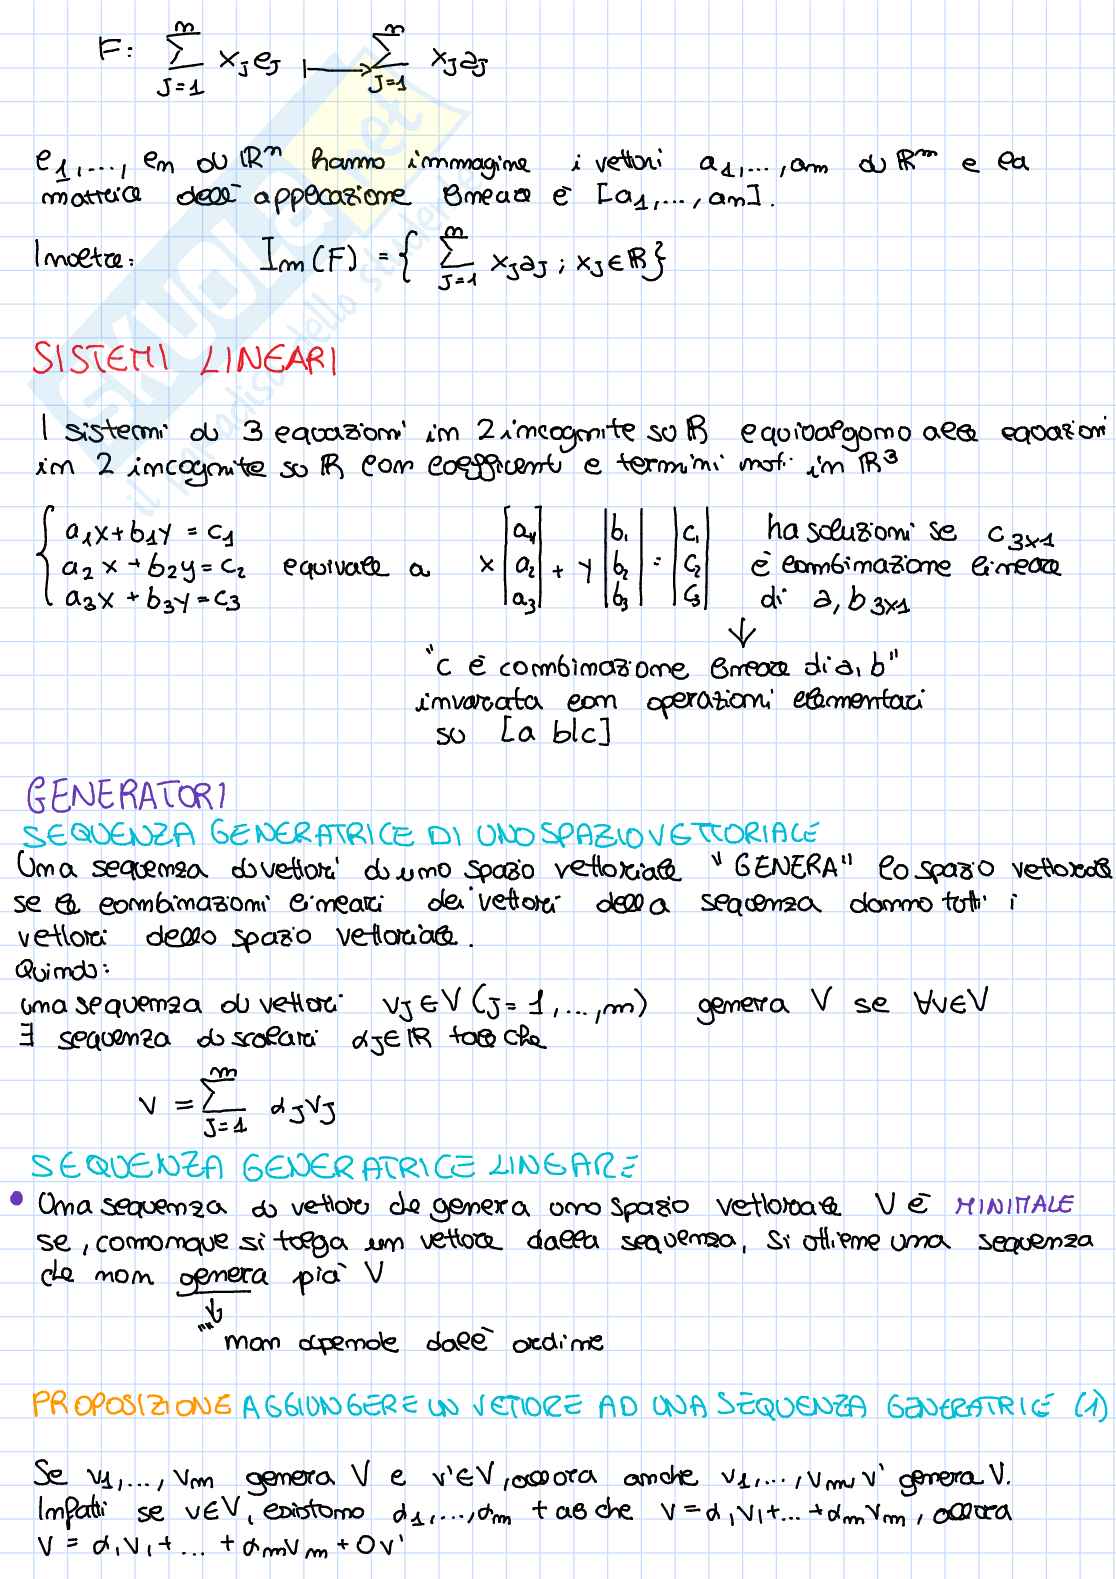 F: ∑_{J=1}^{n} x_J e_J ⟼ ∑_{J=1}^{n} x_J a_J
e1,..., en di ℝⁿ hanno immagine i vettori a1,...,an di ℝᵐ e la
matrice dell'applicazione lineare è [a1,...,an].
Inoltre: Im(F) = { ∑_{J=1}^{n} x_J a_J ; x_J ∈ ℝ }
SISTEMI LINEARI
I sistemi di 3 equazioni in 2 incognite su ℝ equivalgono alle equazioni
in 2 incognite su ℝ con coefficenti e termini noti in ℝ³
a1x+b1y = c1
a2x+b2y = c2 equivale a x |a1 a2 a3| + y |b1 b2 b3| = |c1 c2 c3|
a3x+b3y = c3
ha soluzioni se c 3x1
è combinazione lineare
di a, b 3x1
↓
"c è combinazione lineare di a, b"
invariata con operazioni elementari
su [a b|c]
GENERATORI
SEQUENZA GENERATRICE DI UNO SPAZIO VETTORIALE
Una sequenza di vettori di uno spazio vettoriale "GENERA" lo spazio vettoriale
se le combinazioni lineari dei vettori della sequenza danno tutti i
vettori dello spazio vettoriale.
Quindi:
una sequenza di vettori vJ ∈ V (J = 1,...,m) genera V se ∀v∈V
∃ sequenza di scalari αJ∈ℝ tale che
v = ∑_{J=1}^{m} αJ vJ
SEQUENZA GENERATRICE LINEARE
• Una sequenza di vettori che genera uno spazio vettoriale V è MINIMALE
se, comunque si tolga un vettore dalla sequenza, si ottiene una sequenza
che non genera più V
↓
non dipende dall'ordine
PROPOSIZIONE AGGIUNGERE UN VETTORE AD UNA SEQUENZA GENERATRICE (1)
Se v1,..., vm genera V e v'∈V, allora anche v1,...,vm, v' genera V.
Infatti se v∈V, esistono α1,...,αm tali che v = α1v1+...+αmvm, allora
v = α1v1+...+αmvm+0v'
SKUOLA.net
il paradiso dello studente